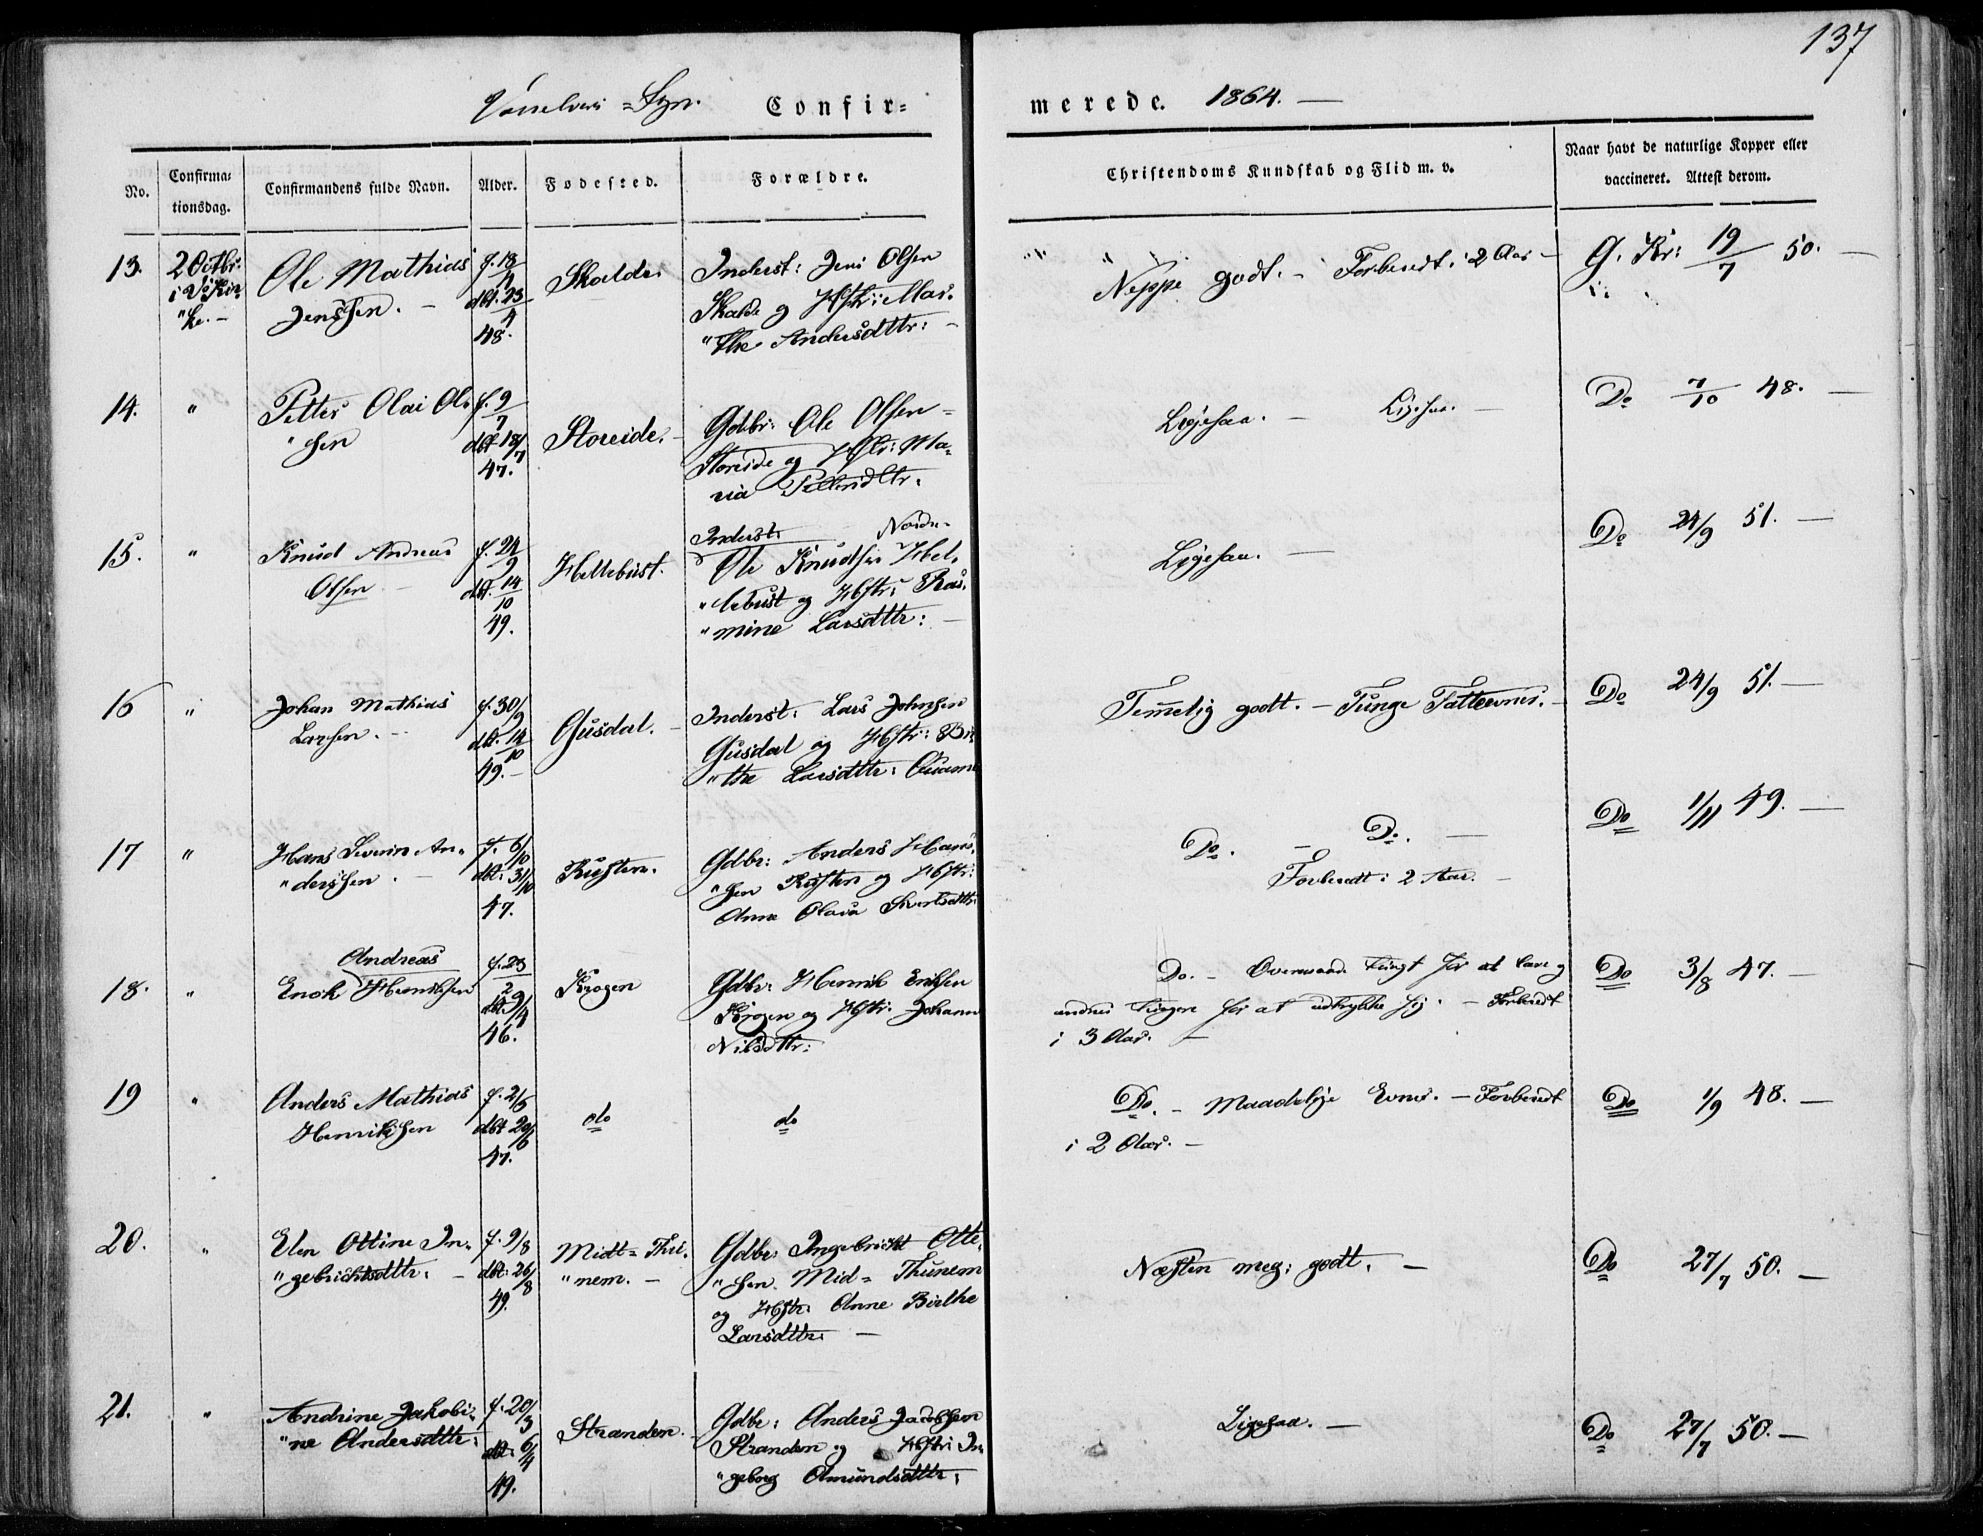 137
Confir-
merede. 1864. —
No.
Confirma-
tionsdag.
Confirmandens fulde Navn.
Alder.
Fødested.
Forældre.
Christendoms Kundskab og Flid m. v.
Naar havt de naturlige Kopper eller
vaccineret. Attest derom.
13. 2 Octbr: Ole Mathias Jenssen. — f. 18/4 dbt. 23/4 48. Skalde.
Inderst: Jens Olsen
Skalde og Hstr: Mar-
"the Andersdttr: —
Neppe godt. — Forberedt i 2 Aar —
G. Kr: 19/7 50. —
14. " Petter Olai Ol-
"sen
f. 9/7 dbt. 18/7 47.
Storeide. —
Gdbr: Ole Olsen
Storeide og Hstr: Ma-
ria Pettersdttr.
Ligesaa. — Ligesaa. —
Do 7/10 48. —
15. " Knud Andreas
Olsen —
f. 24/9 dbt. 14/10 49.
Hellebust.
Inderst: Nordre-
Ole Knudsen Hel-
"lebust og Hstr: Ras-
"mine Larsdttr: —
Ligesaa. —
Do 24/9 51. —
16 " Johan Mathias
Larsen. —
f. 30/9 dbt. 14/10 49. —
Gusdal. —
Inderst: Lars Johnsen
Gusdal og Hstr: Bir-
"the Larsdttr:
Temmelig godt. — Tunge Fatteevner. —
Do 24/9 51. —
17 " Hans Severin An-
"derssen. —
f. 6/10 dbt: 31/10 47.
Rusten.
Gdbr: Anders Hans-
"sen Rusten og Hstr:
Anne Olava Sivertsdttr:
Do. — Do. —
Forberedt i 2 Aar. —
Do 1/11 49. —
18. " Andreas
Enok Henriksen
f. 23/2 dbt 9/4 46.
Krogen
Gdbr: Henrik Eriksen
Krogen og Hstr: Johann
Nilsdttr:
Do. — Overmaade tungt for at lære og
endnu tungere for at udtrykke sig. — Forberedt
i 3 Aar. —
Do 3/8 47. —
19 " Anders Mathias
Henriksen
f. 2/6 dbt 20/6 47.
do
do
Do. — Maadelige Evner. — Forberedt
i 2 Aar. —
Do 1/9 48. —
20. " Elen Ottine In-
"gebrichtsdttr: —
f. 9/8 dbt: 26/8 49.
Midt-Thu-
"nem. —
Gdbr: Ingebricht Otte-
"sen Mid-Thunem
og Hstr: Anne Birthe
Larsdttr: —
Næsten meg: godt. —
Do 27/7 50. —
21. " Andrine Jakobi-
"ne Andersdttr:
f. 20/3 dbt: 6/4 49.
Stranden.
Gdbr: Anders Jacobsen
Stranden og Hstr: In-
"geborg Amundsdttr:
Ligesaa. —
Do 27/7 50. —